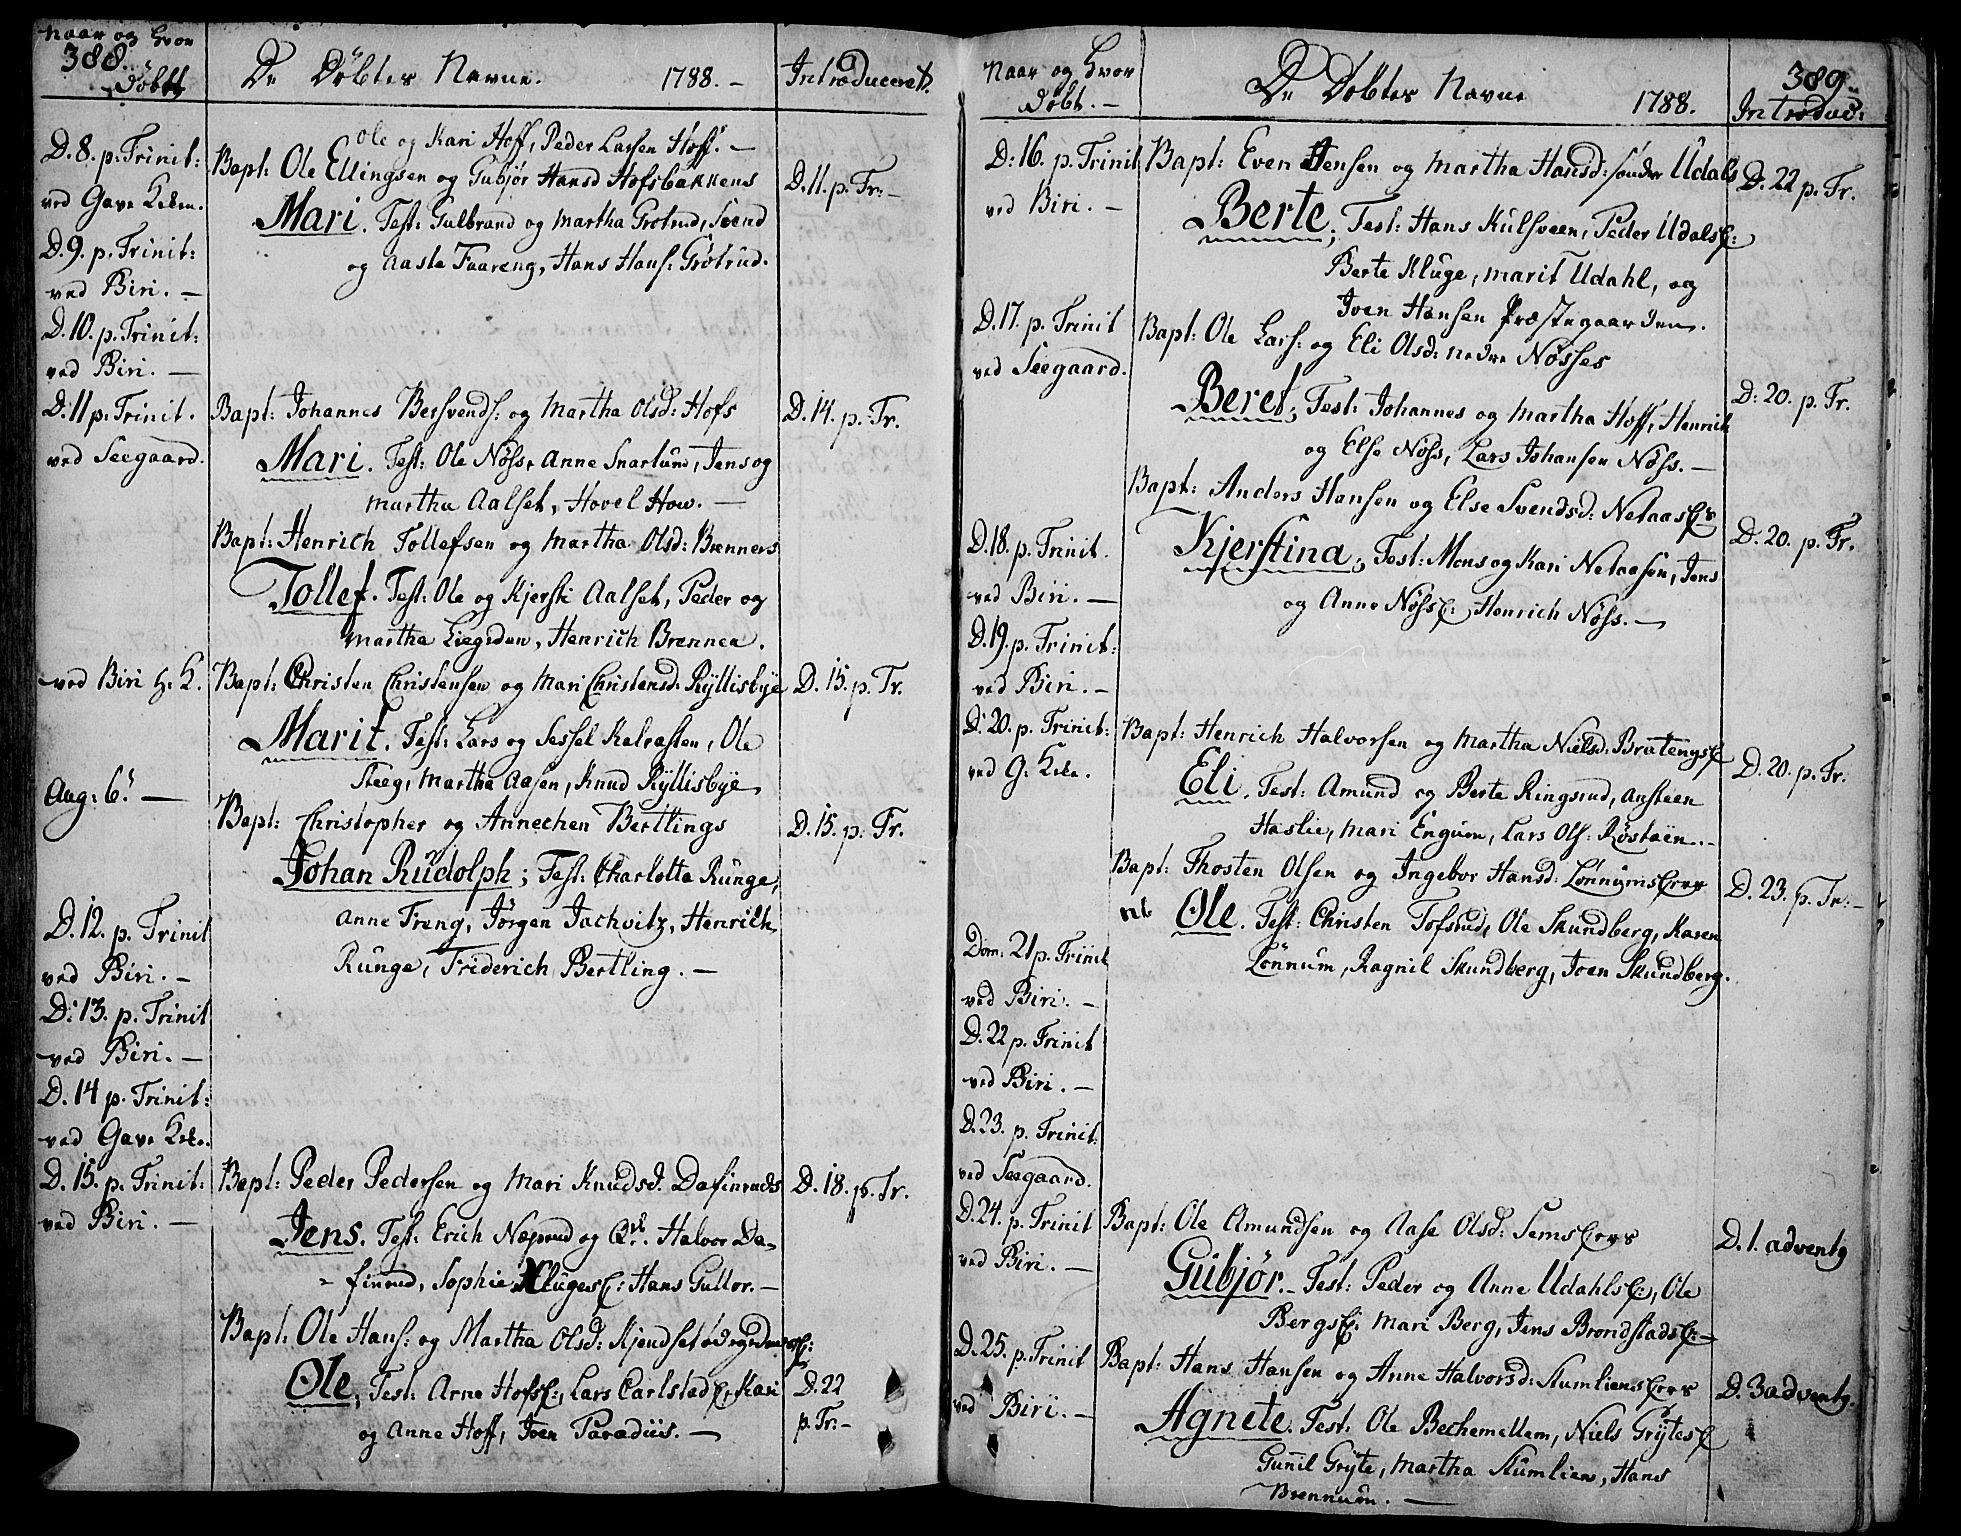 Naar og hvor
388.
Døbt
De Døbtes Navne. 1788. –
Introduceret.
D. 8. p. Trinit:
ved Gave Kirke.
D. 9. p. Trinit:
ved Biri. –
D. 10. p. Trinit:
ved Biri. –
Ole og Kari Hoff, Peder Larsen Hoff. –
Bapt: Ole Ellingsen og Gubjør Hansd Hofsbakkens
D. 11. p. Tr: –
Mari. Test: Gulbrand og Martha Grøtrud, Svend
og Aaste Faareng, Hans Hans: Grøtrud.
D. 11 p. Trinit.
ved Seegaard.
Bapt: Johannes Bersvends: og Martha Olsd: Hofs
D. 14. p. Tr.
Mari. Test: Ole Nøss, Anne Snarlund, Jens og
Martha Aalset, Hovel How. –
Bapt: Henrich Tollefsen og Martha Olsd: Brenners
Tollef. Test: Ole og Kjersti Aalset, Peder og
Martha Liegrden, Henrich Brennea.
ved Biri H. K.
Bapt: Christen Christensen og Mari Christensd. Ryllisbye
D. 15. p. Tr.
Marit. Test: Lars og Sessel Kalrasten, Ole
Steeg, Martha Aasen, Knud Ryllisbye,
Aug: 6. –
Bapt: Christopher og Annechen Bertlings
D. 15. p. Tr.
Johan Rudolph; Test: Charlotta Runge,
Anne Freng, Jørgen Jachvitz, Henrich
Runge, Friderich Bertling. –
D. 12. p. Trinit
ved Biri. –
D. 13. p. Trinit
ved Biri. –
D. 14 p. Trinit:
ved Gave Kirke.
D. 15. p. Trinit:
ved Biri. –
Bapt: Peder Pedersen og Mari Knudsd. Dafinruds
D. 18. p. Tr.
Jens. Test: Erich Næprud og Qv. Halvor Da-
finrud, Sophie Kluges E: Hans Guttor. –
Bapt: Ole Hans: og Martha Olsd: Kjendset ødegrden E:
Ole, Test: Arne Hofs E:, Lars Carlstad E: Kari
D. 22
p. Tr: –
og Anne Hoff, Joen Paradiis. –
Naar og hvor
Døbt. –
De Døbtes Navne 1788.
389.
Introduc:
D: 16. p. Trinit
ved Biri. –
Bapt: Even Jensen og Martha Hansd: søndre Udals
D. 22 p. Tr.
Berte; Test: Hans Kulsveen, Peder Udals E:
Berte Kluge, Marit Udahl, og
Joen Hansen Præstegaarden.
D. 17. p. Trinit
ved Seegaard.
Bapt: Ole Lars: og Eli Olsd: nedre Nøsses
D: 20. p. Tr.
Beret; Test: Johannes og Martha Hoff, Henrich
og Else Nøss, Lars Johansen Nøss. –
Bapt: Anders Hansen og Else Svendsd: Netaas E:
D. 18. p. Trinit.
ved Biri. –
D. 20. p. Tr.
Kjerstina; Test: Mons og Kari Netaasen, Jens
og Anne Nøss E: Henrich Nøss. –
D. 19. p. Trinit:
ved Biri. –
D. 20. p. Trinit:
ved G. Kirke.
Bapt: Henrich Halvorsen og Martha Nielsd: Bratengs E
D. 20. p. Tr.
Eli. Test: Amund og Berte Ringsrud, Ansteen
Haslie, Mari Engum, Lars Ols: Røstøen. –
Bapt: Thosten Olsen og Ingebor Hansd: Lønnums Eier
D. 23. p. Tr: –
nb Ole. Test: Christen Tofsrud, Ole Skundberg, Karen
Lønnum, Ragnil Skundberg, Joen Skundberg.
Dom: 21 p. Trinit
ved Biri. –
D. 22 p. Trinit
ved Biri. –
D. 23. p. Trinit:
ved Seegaard.
D. 24. p. Trinit
ved Biri. –
Bapt: Ole Amundsen og Aase Olsd: Sems Eier
D. 1. adventg
Gubjør. – Test: Peder og Anne Udahls E:, Ole
Bergs E: Mari Berg, Jens Brondstads E: –
D. 25. p. Trinit
ved Biri. –
Bapt: Hans Hansen og Anne Halvorsd: Stumliens Eier
D. 3 adventg.
Agnete. Test: Ole Bechemellem, Niels Grytes E
Gunil Gryte, Martha Stumlien, Hans
Brennum. –